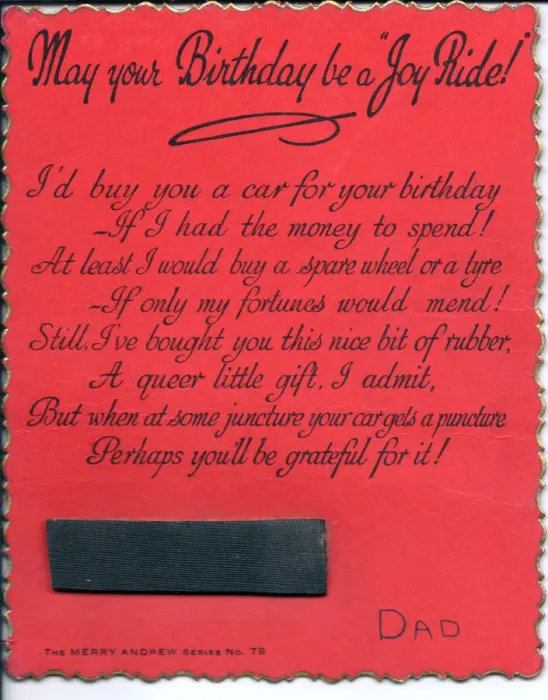 May your Birthday be a "Joy Ride!"
I'd buy you a car for your birthday
-If I had the money to spend!
At least I would buy a spare wheel or a tyre
-If only my fortunes would mend!
Still, I've bought you this nice bit of rubber,
A queer little gift, I admit,
But when at some juncture your car gets a puncture
Perhaps you'll be grateful for it!
DAD
THE MERRY ANDREW SERIES No. 78